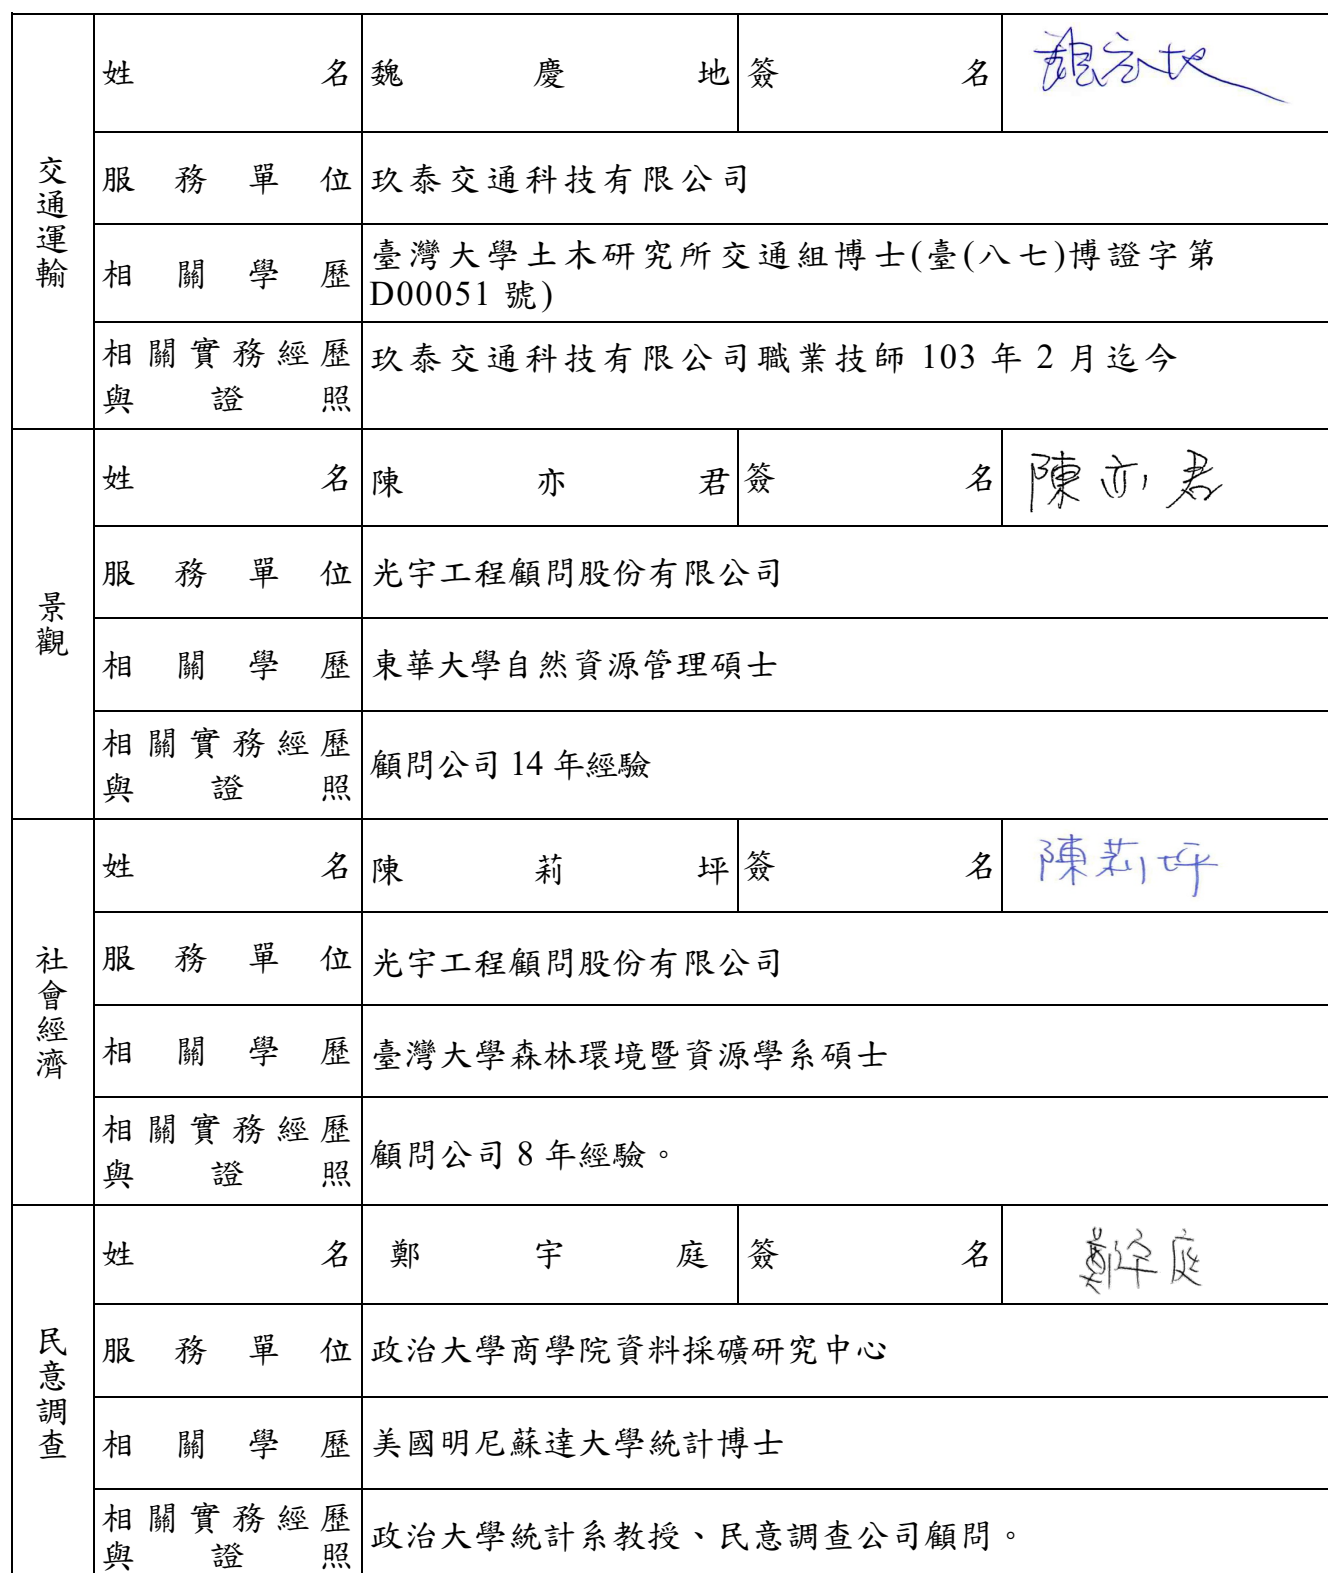 交通運輸
姓名 魏慶地 簽名 魏慶地
服務單位 玖泰交通科技有限公司
相關學歷 臺灣大學土木研究所交通組博士(臺(八七)博證字第
D00051 號)
相關實務經歷
與證照 玖泰交通科技有限公司職業技師 103 年 2 月迄今
景觀
姓名 陳亦君 簽名 陳亦君
服務單位 光宇工程顧問股份有限公司
相關學歷 東華大學自然資源管理碩士
相關實務經歷
與證照 顧問公司 14 年經驗
社會經濟
姓名 陳莉坪 簽名 陳莉坪
服務單位 光宇工程顧問股份有限公司
相關學歷 臺灣大學森林環境暨資源學系碩士
相關實務經歷
與證照 顧問公司 8 年經驗。
民意調查
姓名 鄭宇庭 簽名 鄭宇庭
服務單位 政治大學商學院資料採礦研究中心
相關學歷 美國明尼蘇達大學統計博士
相關實務經歷
與證照 政治大學統計系教授、民意調查公司顧問。